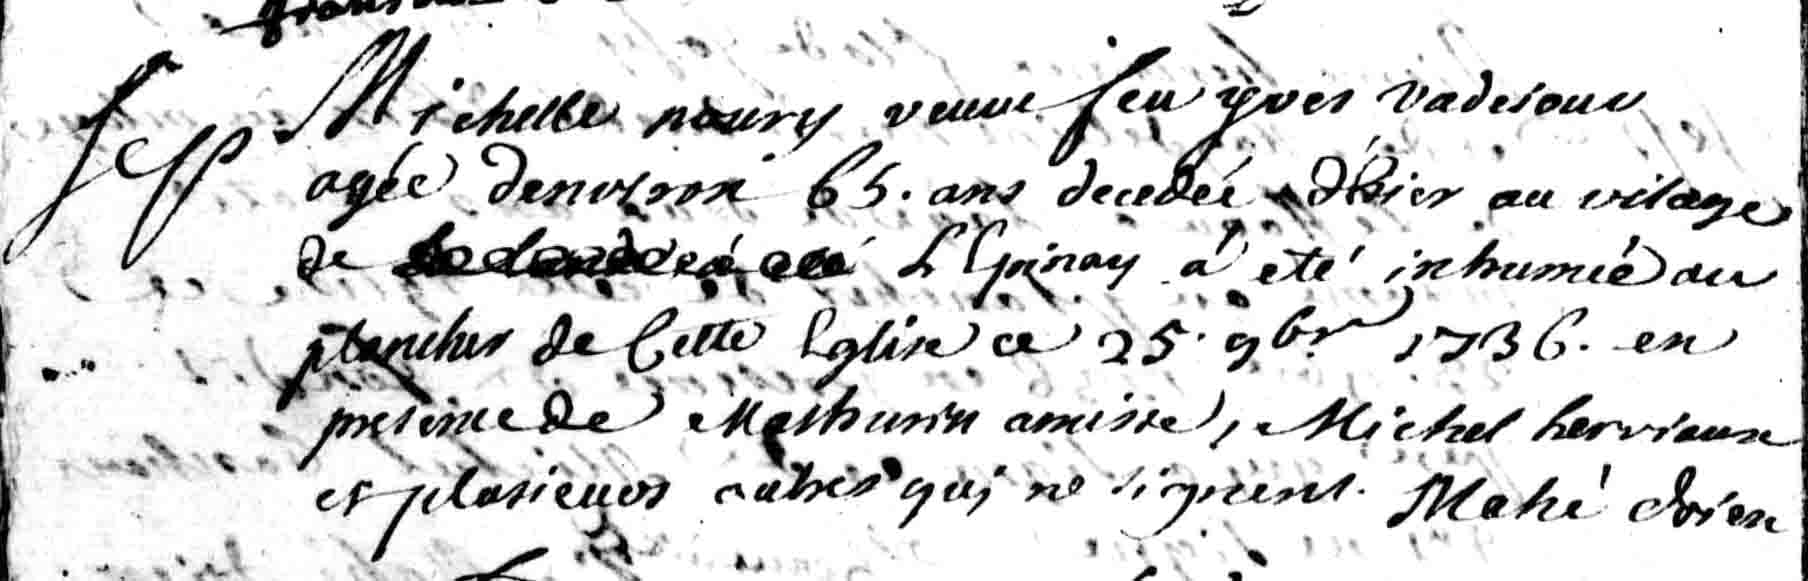 Sep Michelle noury veuve feu yves Vadesoux
agée denviron 65. ans decedée d'hier au vilage
de L'Epinay a été inhumée au
plancher de Cette Eglise ce 25. 9br 1736. en
presence de Mathurin amisse, Michel herviaux
et plusieurs autres qui ne signent. Mahé doien